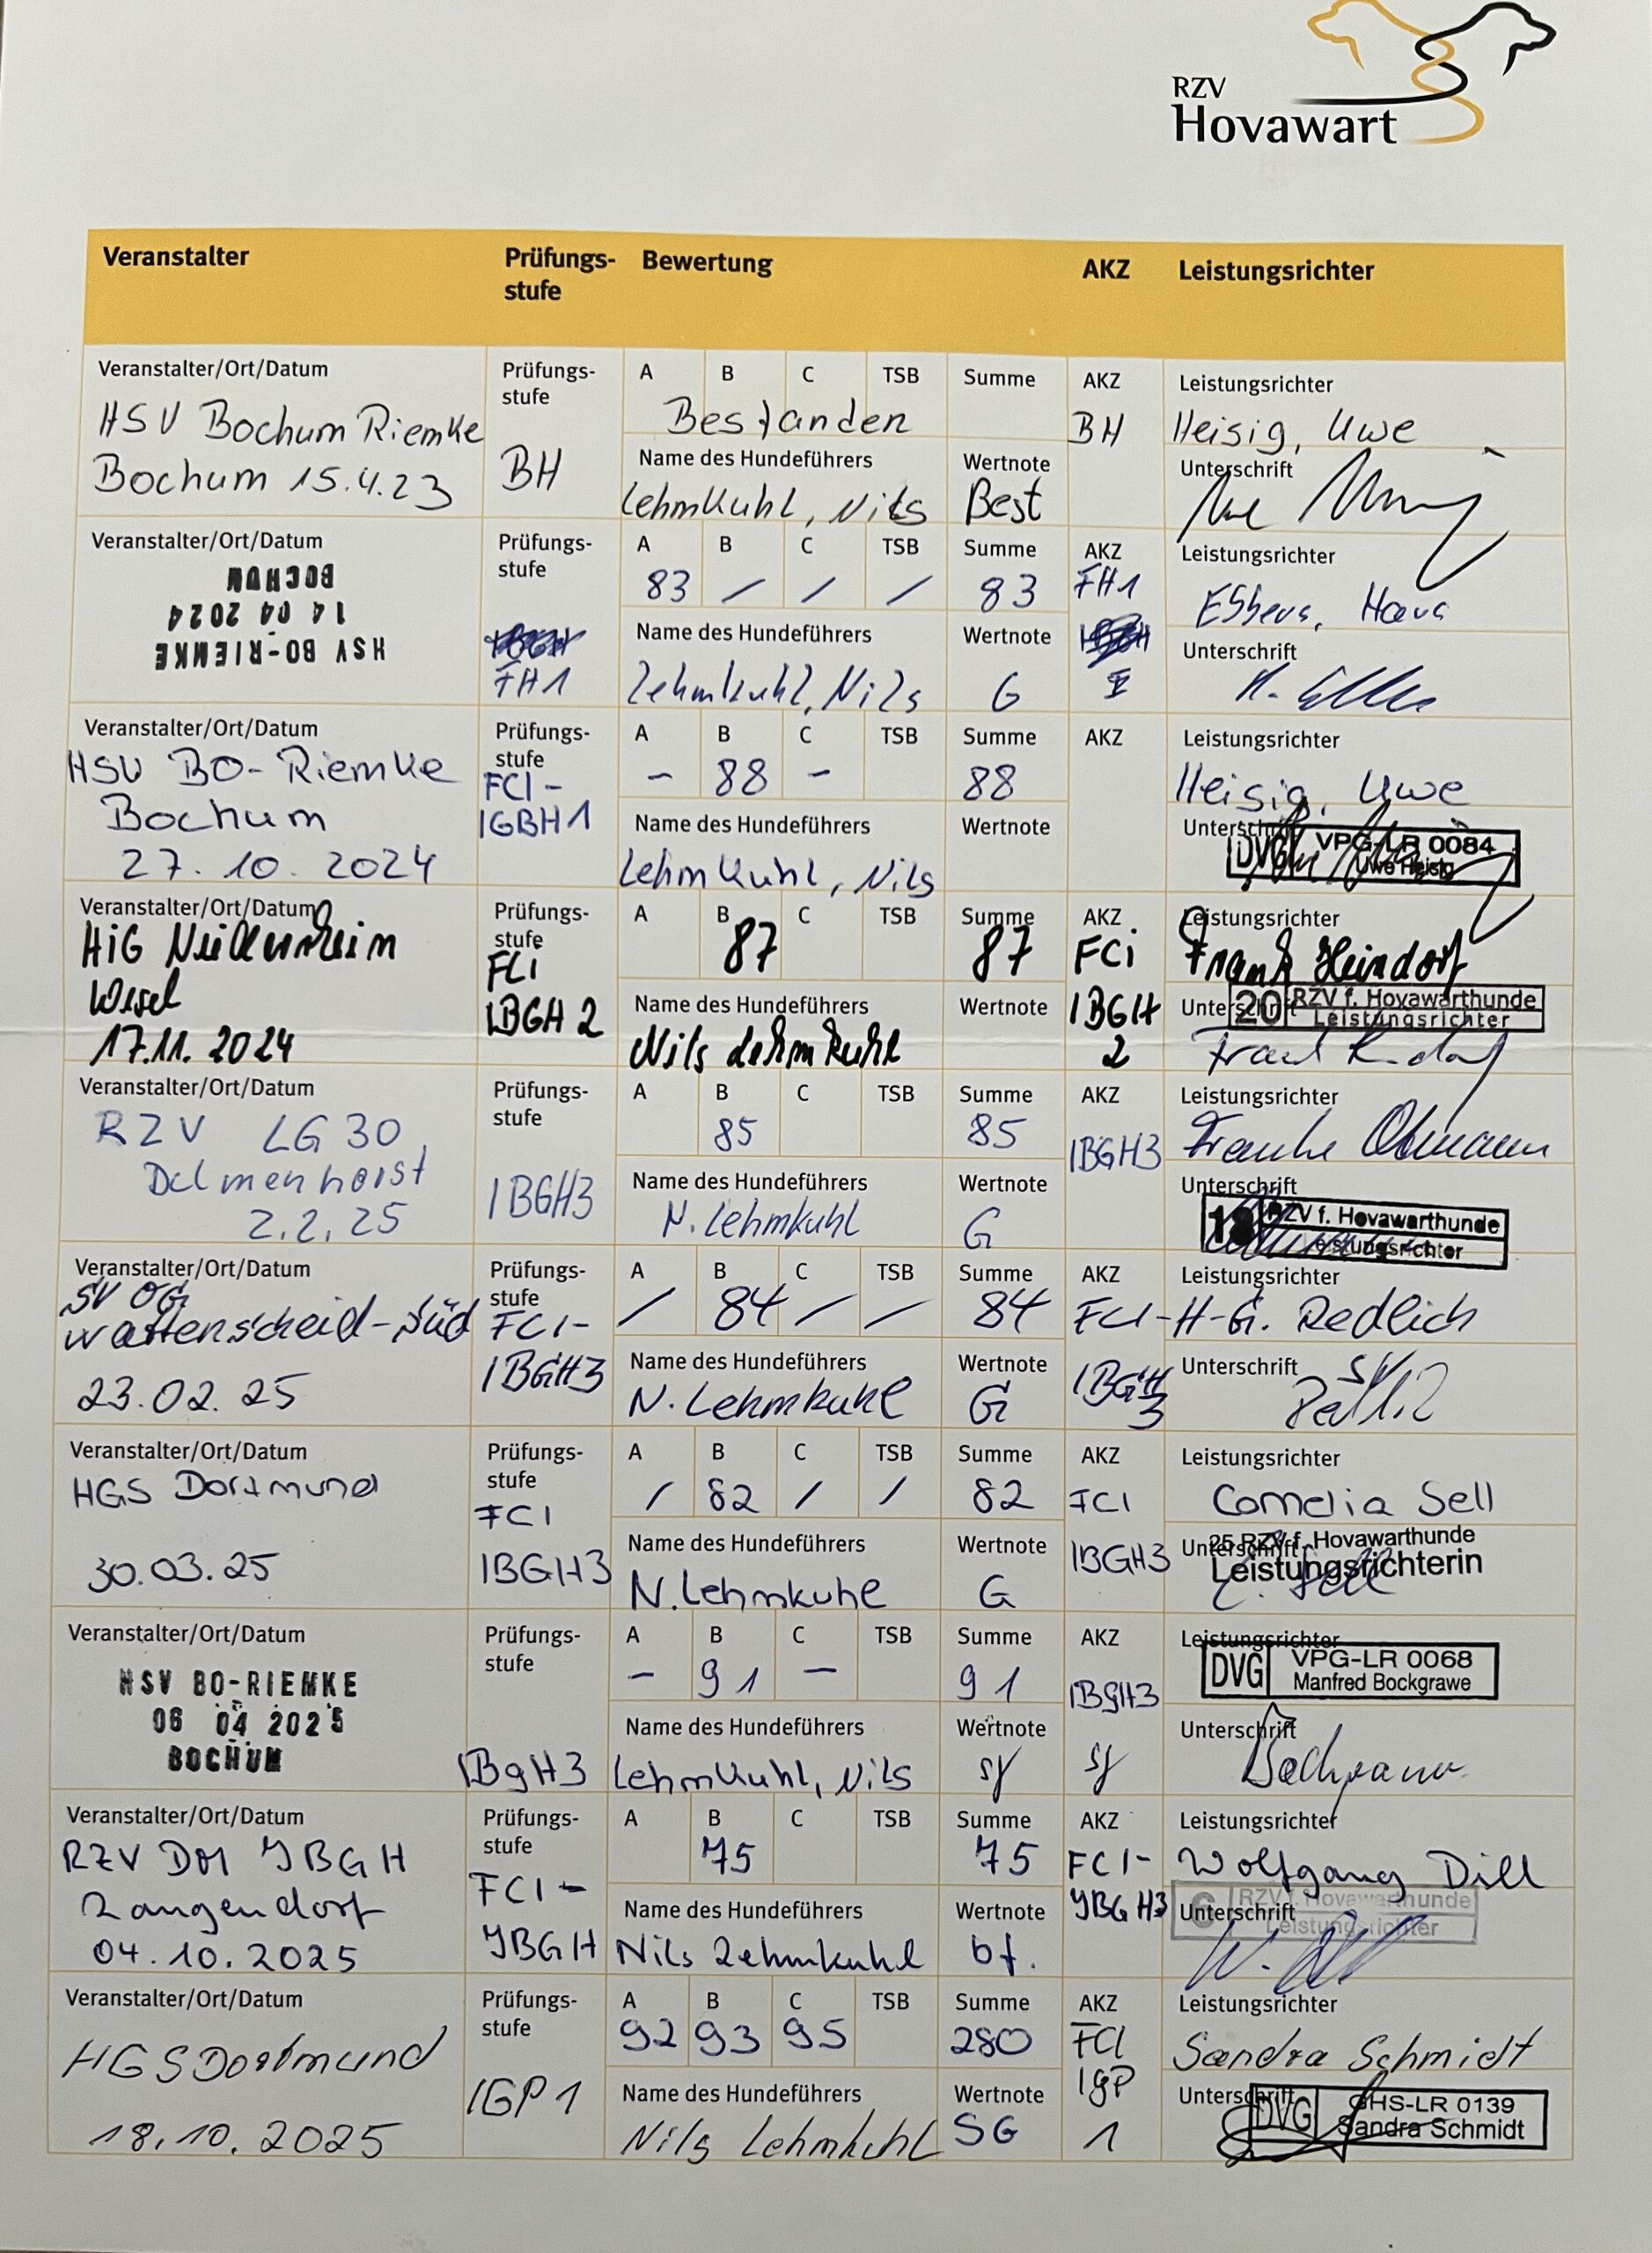 RZV
Hovawart
Veranstalter Prüfungs-stufe Bewertung AKZ Leistungsrichter
Veranstalter/Ort/Datum Prüfungs-stufe A B C TSB Summe AKZ Leistungsrichter
HSV Bochum Riemke Bestanden BH Heisig, Uwe
Name des Hundeführers Wertnote Unterschrift
Bochum 15.4.23 BH Lehmkuhl, Nils Best
Veranstalter/Ort/Datum Prüfungs-stufe A B C TSB Summe AKZ Leistungsrichter
HSV BO-RIEMKE
14 04 2024
BOCHUM
83 / / / 83 FH1
Name des Hundeführers Wertnote Unterschrift
FH1 Lehmkuhl, Nils G
Veranstalter/Ort/Datum Prüfungs-stufe A B C TSB Summe AKZ Leistungsrichter
HSV BO-Riemke FCI- - 88 - 88 Heisig, Uwe
Bochum IGBH1 Name des Hundeführers Wertnote Unterschrift
DVG VPG-LR 0084
Uwe Heisig
27.10.2024 Lehmkuhl, Nils
Veranstalter/Ort/Datum Prüfungs-stufe A B C TSB Summe AKZ Leistungsrichter
HiG FCi 87 87 FCi Frank Heindorf
Wesel IBGH 2 Name des Hundeführers Wertnote IBGH 2 Unterschrift
20 RZV f. Hovawarthunde
Leistungsrichter
17.11.2024 Nils Lehmkuhl
Veranstalter/Ort/Datum Prüfungs-stufe A B C TSB Summe AKZ Leistungsrichter
RZV LG 30 85 85 IBGH3 Frauke
Delmenhorst IBGH3 Name des Hundeführers Wertnote Unterschrift
2.2.25 N. Lehmkuhl G
RZV f. Hovawarthunde
Leistungsrichter
Veranstalter/Ort/Datum Prüfungs-stufe A B C TSB Summe AKZ Leistungsrichter
SV OG
Wattenscheid-Süd FCI- / 84 / / 84 FCI- H-G. Redlich
IBGH3 Name des Hundeführers Wertnote IBGH 3 Unterschrift
23.02.25 N. Lehmkuhl G
Veranstalter/Ort/Datum Prüfungs-stufe A B C TSB Summe AKZ Leistungsrichter
HGS Dortmund FCI / 82 / / 82 FCI Cornelia Sell
Name des Hundeführers Wertnote Unterschrift
25 RZV f. Hovawarthunde
Leistungsrichterin
30.03.25 IBGH3 N. Lehmkuhl G IBGH3
Veranstalter/Ort/Datum Prüfungs-stufe A B C TSB Summe AKZ Leistungsrichter
HSV BO-RIEMKE
06 04 2025
BOCHUM
- 91 - 91 IBGH3
DVG VPG-LR 0068
Manfred Bockgrawe
Name des Hundeführers Wertnote Unterschrift
IBgH3 Lehmkuhl, Nils sg sg
Veranstalter/Ort/Datum Prüfungs-stufe A B C TSB Summe AKZ Leistungsrichter
RZV DM IBGH FCI- 75 75 FCI- Wolfgang Dill
Langendorf IBGH Name des Hundeführers Wertnote IBGH3 Unterschrift
6 RZV f. Hovawarthunde
Leistungsrichter
04.10.2025 Nils Lehmkuhl bf.
Veranstalter/Ort/Datum Prüfungs-stufe A B C TSB Summe AKZ Leistungsrichter
HGS Dortmund 92 93 95 280 FCI Sandra Schmidt
IGP 1 Name des Hundeführers Wertnote IGP 1 Unterschrift
DVG GHS-LR 0139
Sandra Schmidt
18.10.2025 Nils Lehmkuhl SG